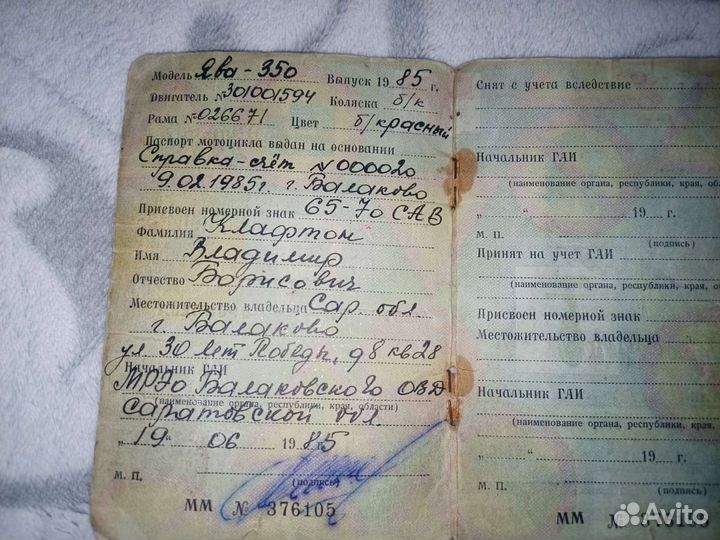 Модель Ява-350 Выпуск 1985 г.
Двигатель № 301001594 Коляска б/к
Рама № 026671 Цвет б/красный
Паспорт мотоцикла выдан на основании
Справка-счёт № 000020
9.02.1985г. г. Балаково
Присвоен номерной знак 65-70 САВ
Фамилия Клафтон
Имя Владимир
Отчество Борисович
Местожительство владельца Сар. обл
г. Балаково
ул. 30 лет Победы, д 8 кв 28
Начальник ГАИ
МРЭО Балаковского ОВД
(наименование органа, республики, края, области)
Саратовской обл.
„19“ 06 1985
(подпись)
М. П.
ММ № 376105
Снят с учета вследствие
Начальник ГАИ
(наименование органа, республики, края, об
„ “ 19 г.
М. П. (подпись)
Принят на учет ГАИ
(наименование органа, республики, края, о
Присвоен номерной знак
Местожительство владельца
Начальник ГАИ
(наименование органа, республики, края,
„ “ 19 г.
М. П. (подпись)
ММ №
Avito